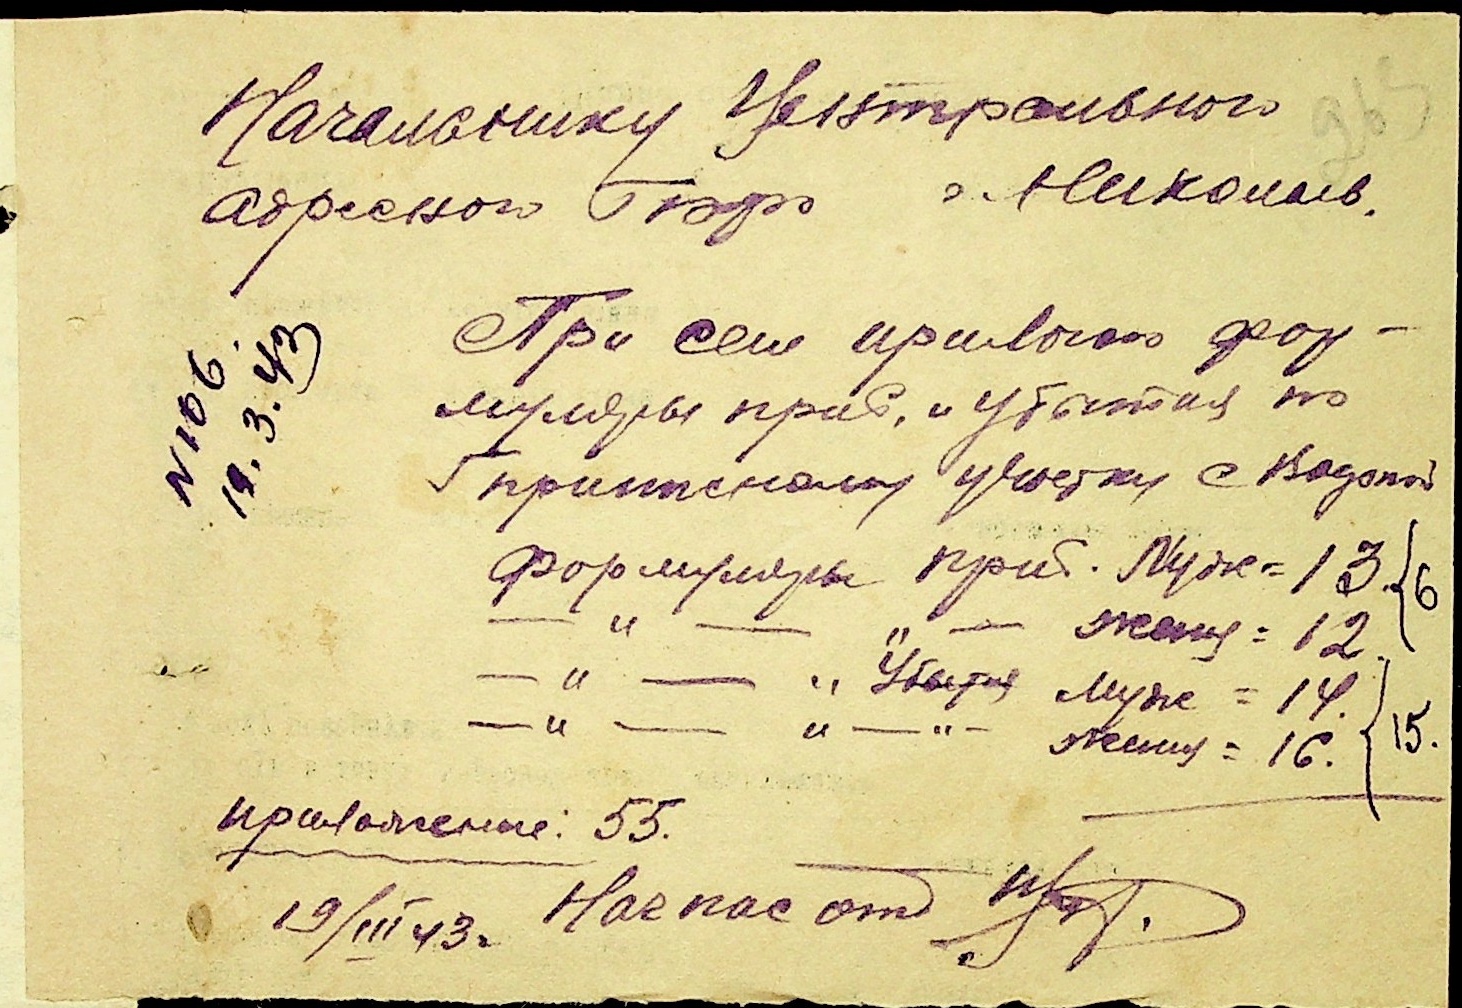 Начальнику Центрального
адресного Бюро г. Николаев.
N 106.
19. 3. 43
При сем прилогаю фор-
муляры приб. и убытия по
участку с водокой
формуляры приб. Муж = 13. { 6
— " — " — женщ = 12.
— " — " Убытия муж = 14. { 15.
— " — " — " — женщ = 16.
приложение: 55.
19/III 43 г. Нач пас отд